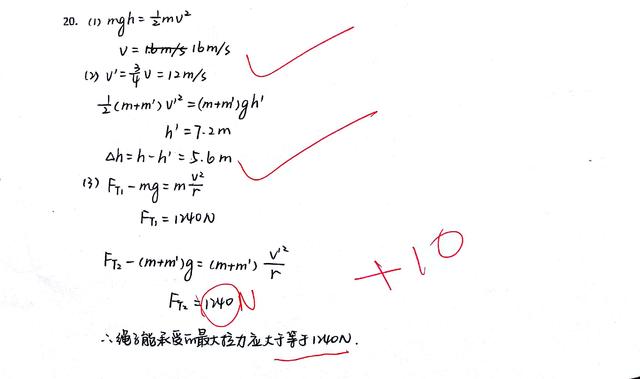 20. (1) mgh = ½mv²
v = 1.6m/s 16m/s
(2) v' = ¾v = 12m/s
½(m+m')v'² = (m+m')gh'
h' = 7.2m
Δh = h-h' = 5.6m
(3) F_T₁ - mg = m v²/r
F_T₁ = 1240N
F_T₂ - (m+m')g = (m+m') v'²/r
F_T₂ = 1240 N
+10
∴绳子能承受的最大拉力应大于等于1240N.